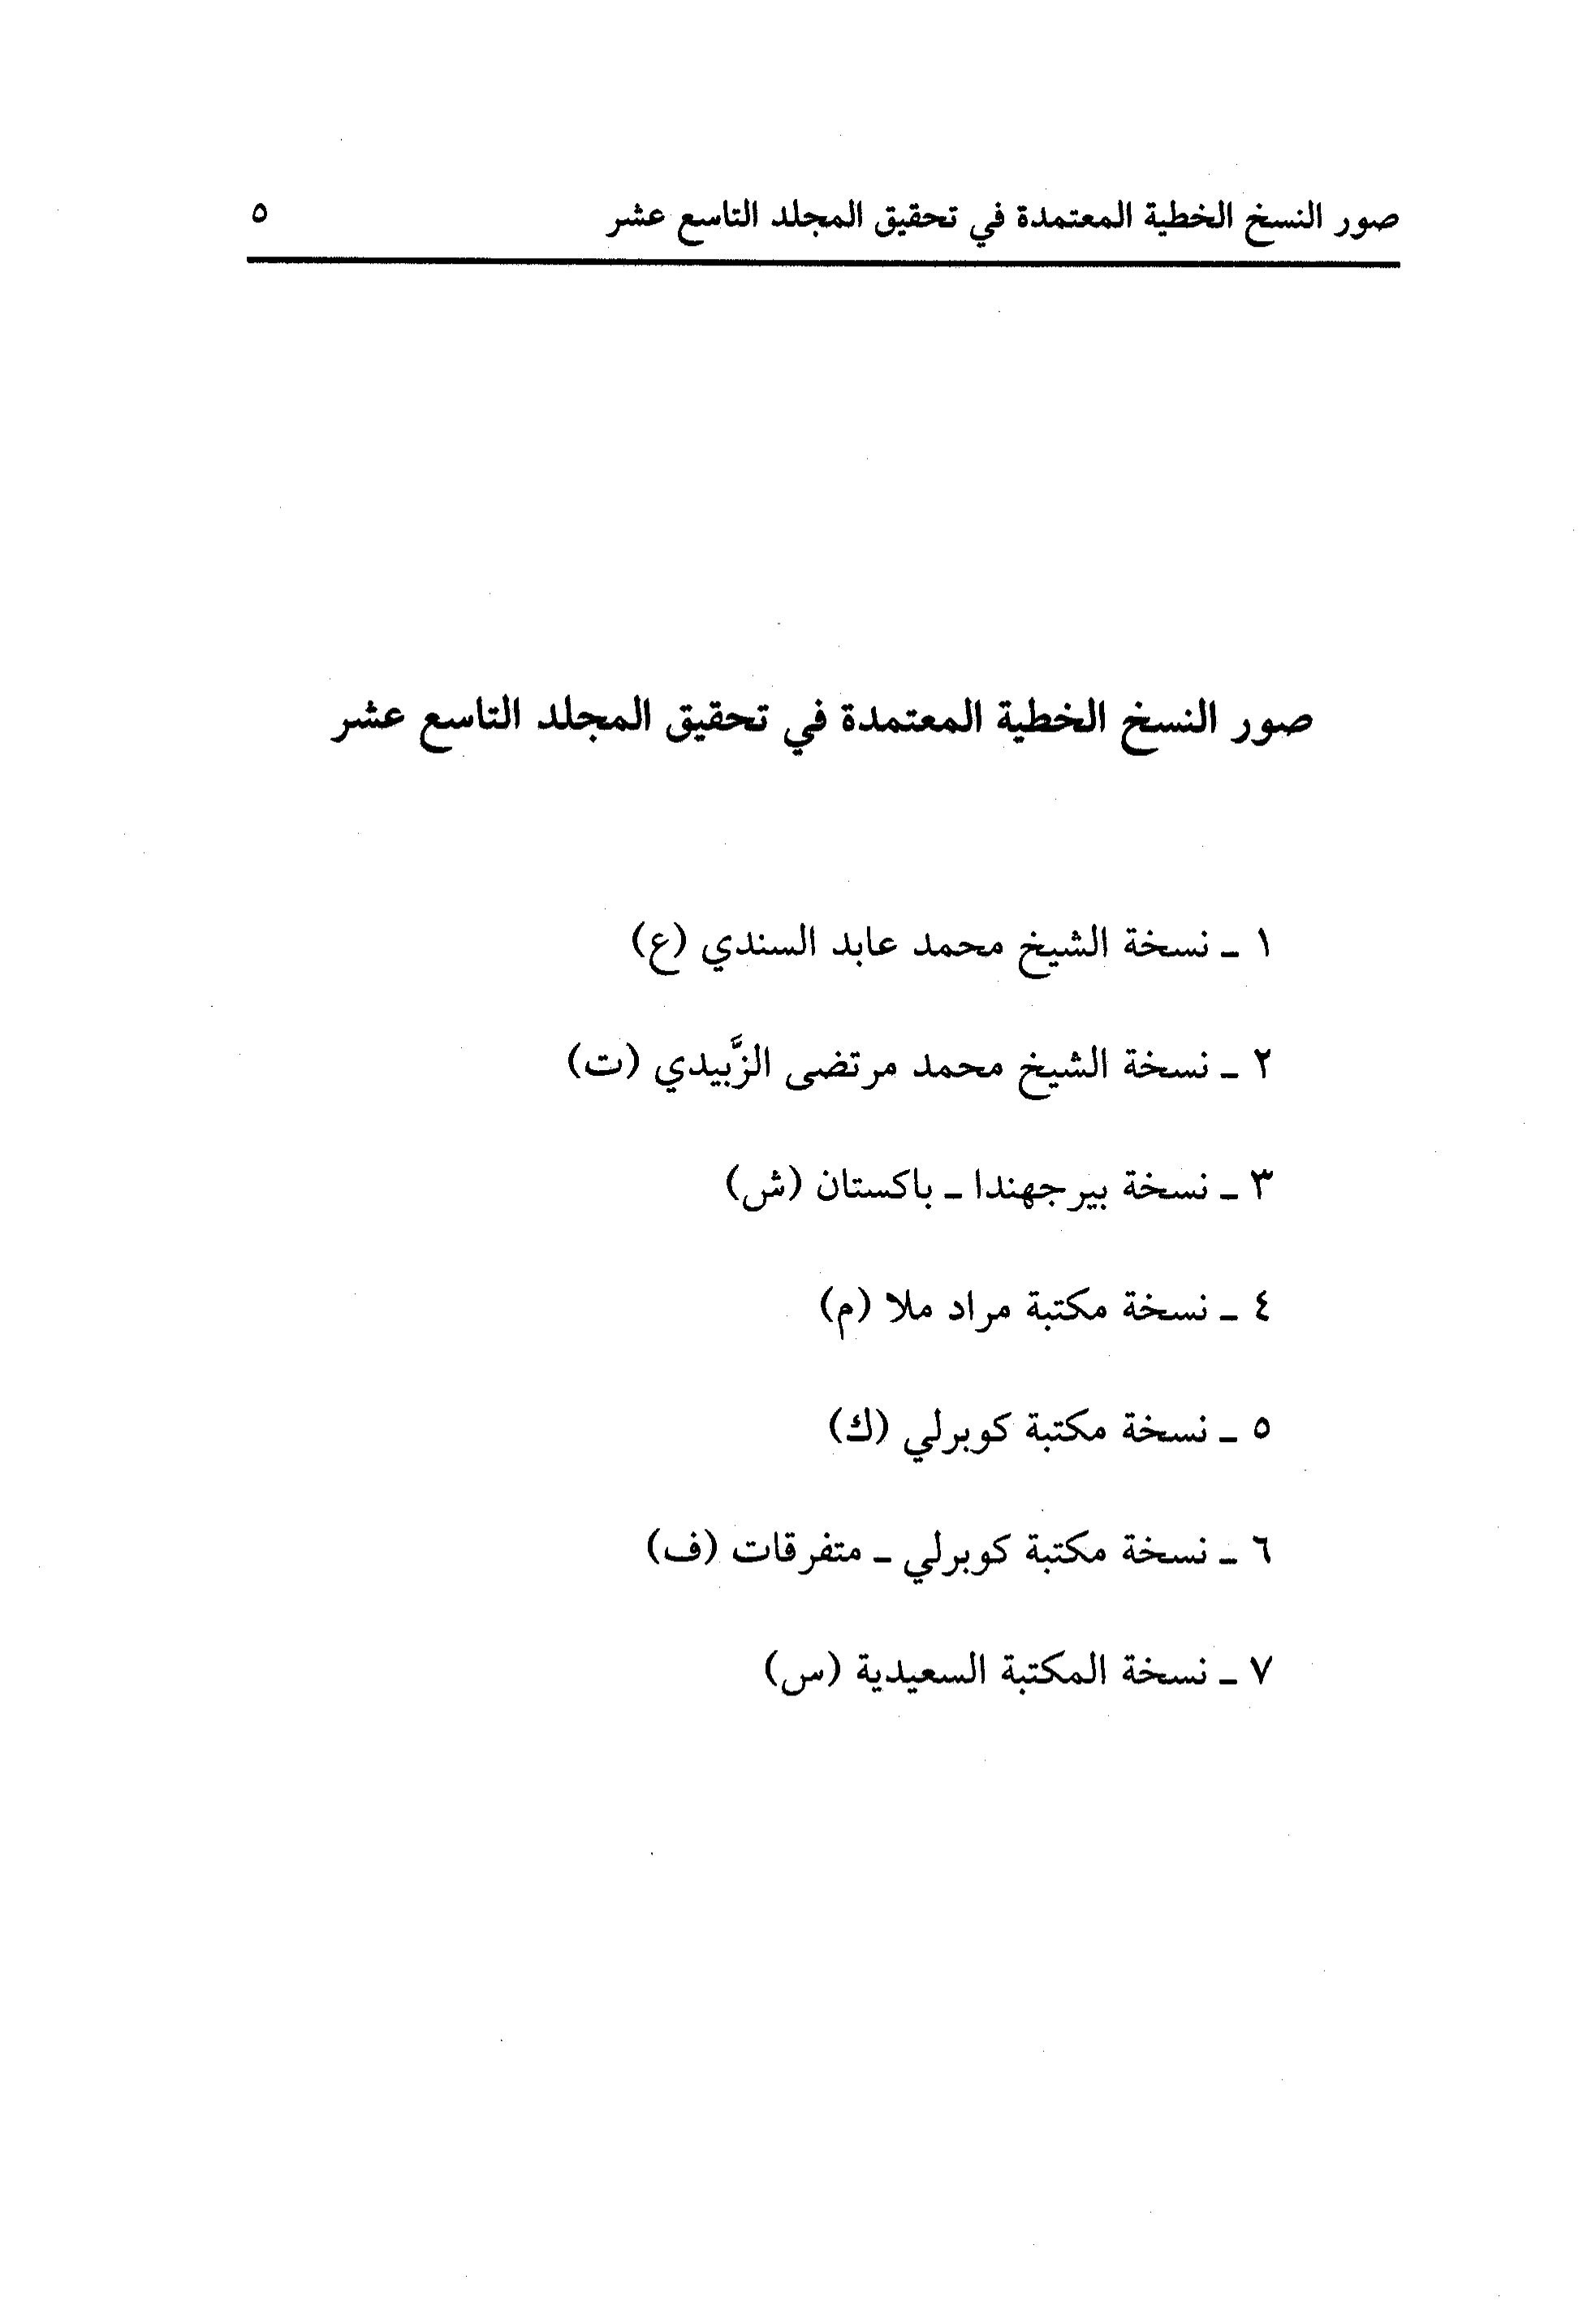 صور النسخ الخطية المعتمدة في تحقيق المجلد التاسع عشر ٥
صور النسخ الخطية المعتمدة في تحقيق المجلد التاسع عشر
١ ـ نسخة الشيخ محمد عابد السندي (ع)
٢ ـ نسخة الشيخ محمد مرتضى الزَّبيدي (ت)
٣ ـ نسخة بيرجهندا ـ باكستان (ش)
٤ ـ نسخة مكتبة مراد ملا (م)
٥ ـ نسخة مكتبة كوبرلي (ك)
٦ ـ نسخة مكتبة كوبرلي ـ متفرقات (ف)
٧ ـ نسخة المكتبة السعيدية (س)